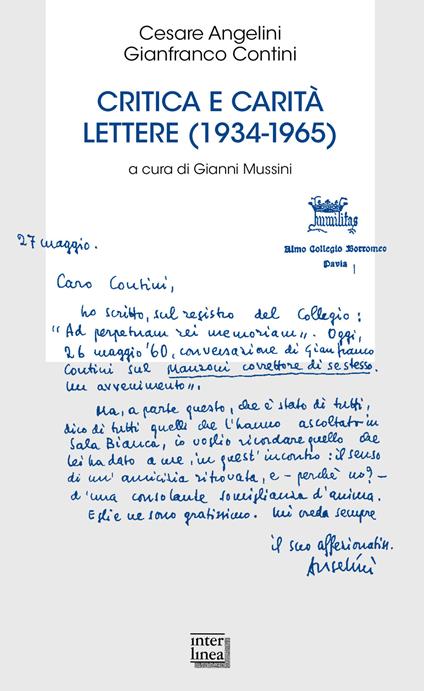 Cesare Angelini
Gianfranco Contini
CRITICA E CARITÀ
LETTERE (1934-1965)
a cura di Gianni Mussini
humilitas
Almo Collegio Borromeo
Pavia
27 maggio.
Caro Contini,
ho scritto, sul registro del Collegio:
"Ad perpetuam rei memoriam„. Oggi,
26 maggio '60, conversazione di Gianfranco
Contini sul Manzoni correttore di se stesso.
Un avvenimento„.
Ma, a parte questo, che è stato di tutti,
dico di tutti quelli che l'hanno ascoltato in
Sala Bianca, io voglio ricordare quello che
lei ha dato a me, in quest'incontro: il senso
di un'amicizia ritrovata, e - perchè no? -
d'una consolante somiglianza d'anima.
E glie ne sono gratissimo. Mi creda sempre
il suo affezionatiss.
Angelini
inter
linea